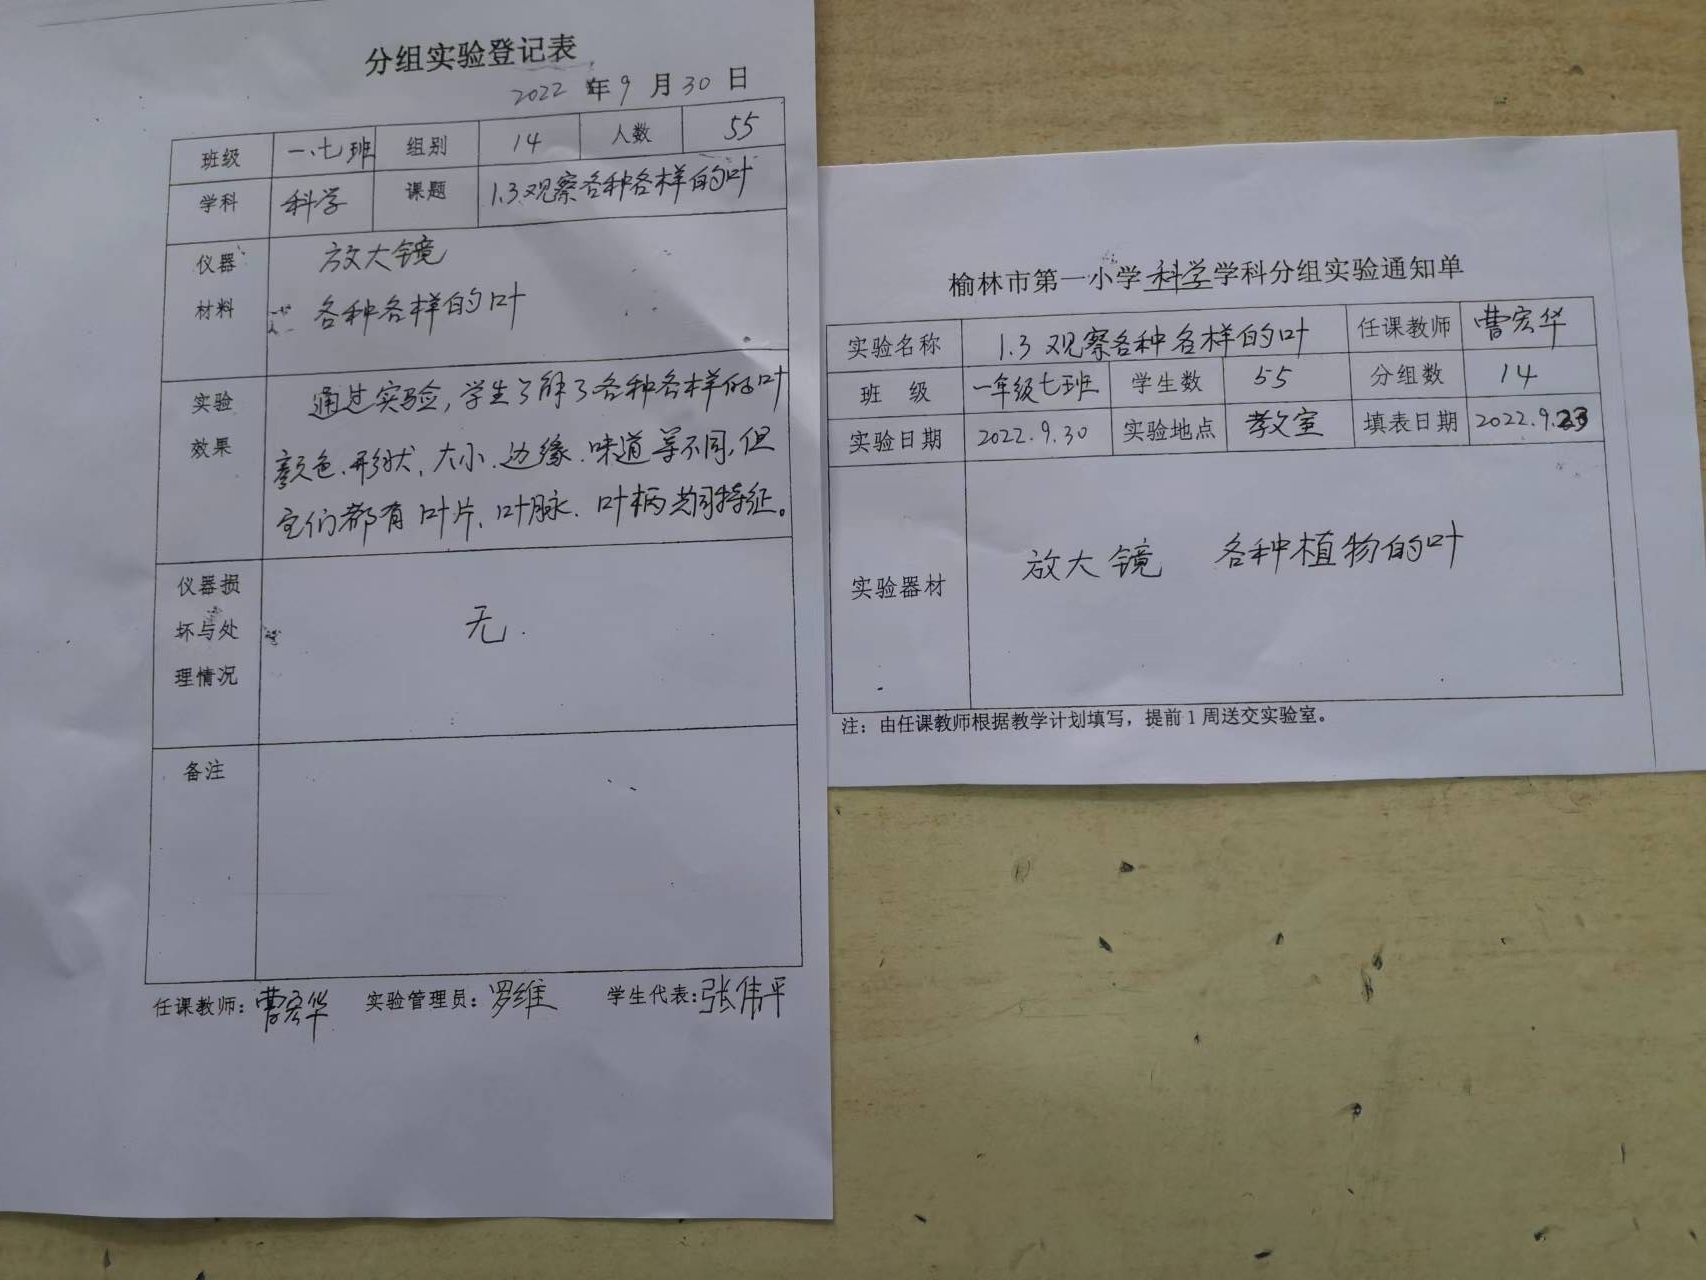 分组实验登记表
2022 年 9 月 30 日
班级 一.七班 组别 14 人数 55
学科 科学 课题 1.3观察各种各样的叶
仪器 放大镜
材料 各种各样的叶
实验 通过实验,学生了解了各种各样的叶
效果 颜色、形状、大小、边缘、味道等不同,但
它们都有叶片、叶脉、叶柄共同特征。
仪器损
坏与处 无.
理情况
备注
任课教师:曹宏华 实验管理员:罗维 学生代表:张伟平
榆林市第一小学科学学科分组实验通知单
实验名称 1.3 观察各种各样的叶 任课教师 曹宏华
班 级 一年级七班 学生数 55 分组数 14
实验日期 2022.9.30 实验地点 教室 填表日期 2022.9.23
实验器材 放大镜 各种植物的叶
注：由任课教师根据教学计划填写，提前1周送交实验室。